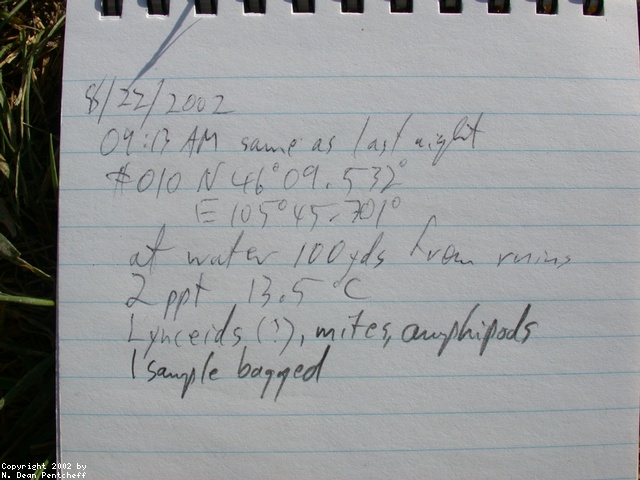 8/22/2002
09:13 AM same as last night
#010 N 46° 09.532°
E 105° 45.701°
at water 100yds from ruins
2 ppt 13.5 °C
Lynceids (!), mites, amphipods
1 sample bagged
Copyright 2002 by
N. Dean Pentcheff